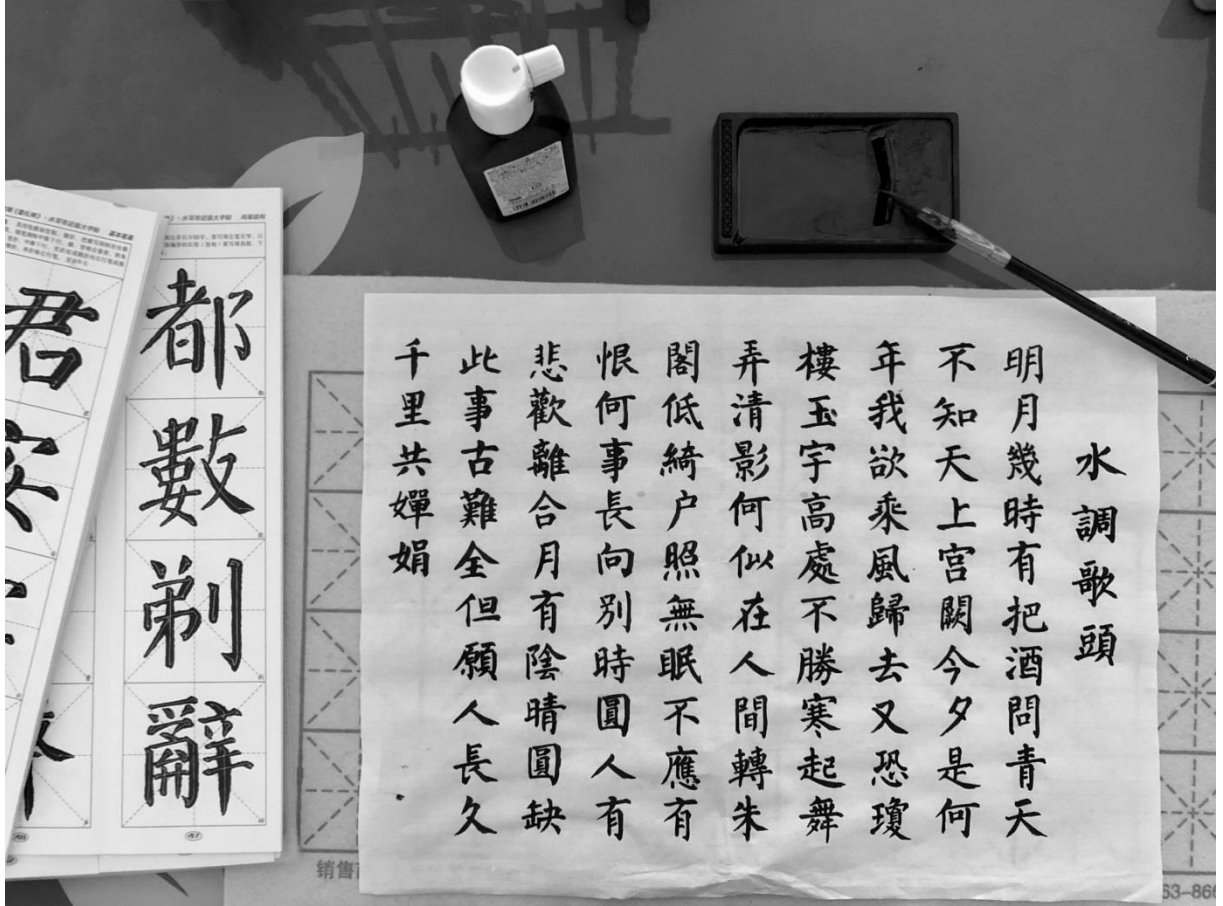 水調歌頭
明月幾時有把酒問青天
不知天上宫闕今夕是何
年我欲乘風歸去又恐瓊
樓玉宇高處不勝寒起舞
弄清影何似在人間轉朱
閣低綺户照無眠不應有
恨何事長向别時圓人有
悲歡離合月有陰晴圓缺
此事古難全但願人長久
千里共嬋娟
都數剃辭
47
君安
销售
63-866